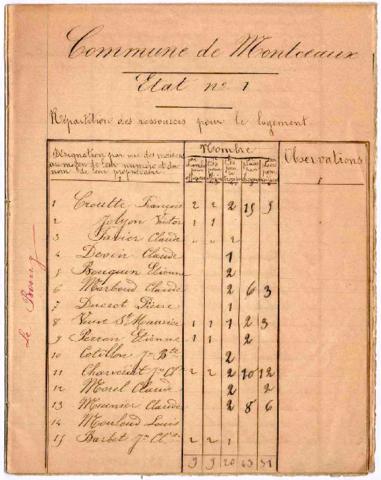 Commune de Montceaux
Etat no 1
Répartition des ressources pour le logement
Désignation par rue des maisons
au moyen de leur numéro et du
nom de leur propriétaire
Nombre
Observations
Le Bourg
1 Croutte François 2 2 2 15 9
2 Jolyon Victor 1 1
3 Favier Claude " " 2
4 Devin Claude 1
5 Bouquin Etienne 2
6 Marboud Claude 2 6 3
7 Ducrot Pierre 1
8 Veuve St Maurice 1 1 1 2 3
9 Perron Etienne 1 1 2
10 Cotillon Jn Bte 2
11 Charvenet Jn Cl 2 2 2 10 12
12 Morel Claude 2 2
13 Meunier Claude 2 8 6
14 Mouloud Louis
15 Barbet Jn Cl 2 2 1
9 9 20 43